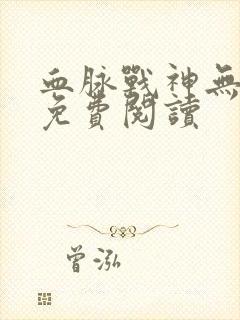 血脉戰神無
免費閱讀
曾泓